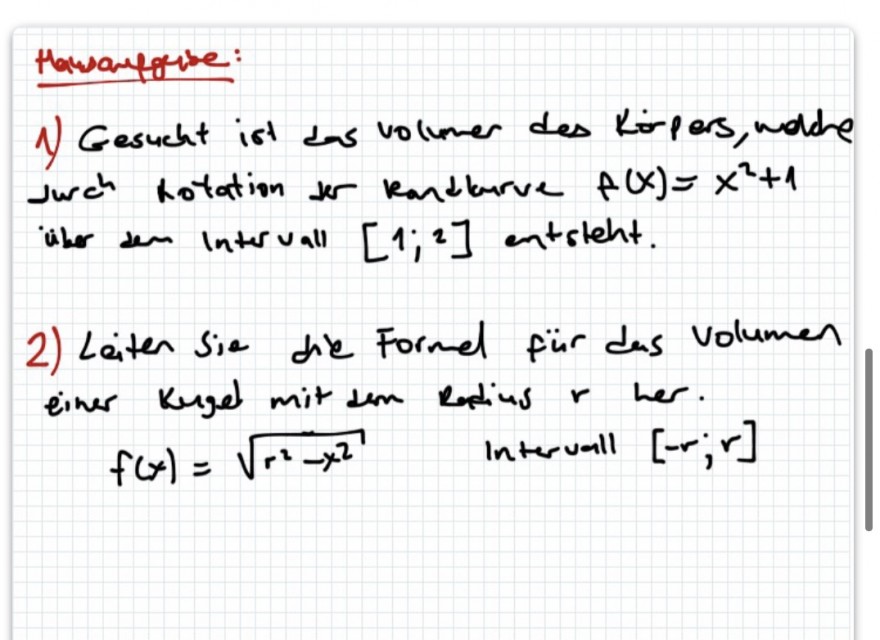 Hausaufgabe:
1) Gesucht ist das Volumen des Körpers, welche
durch Rotation der Randkurve f(x) = x²+1
über dem Intervall [1; 2] entsteht.
2) Leiten Sie die Formel für das Volumen
einer Kugel mit dem Radius r her.
f(x) = √(r² - x²) Intervall [-r; r]